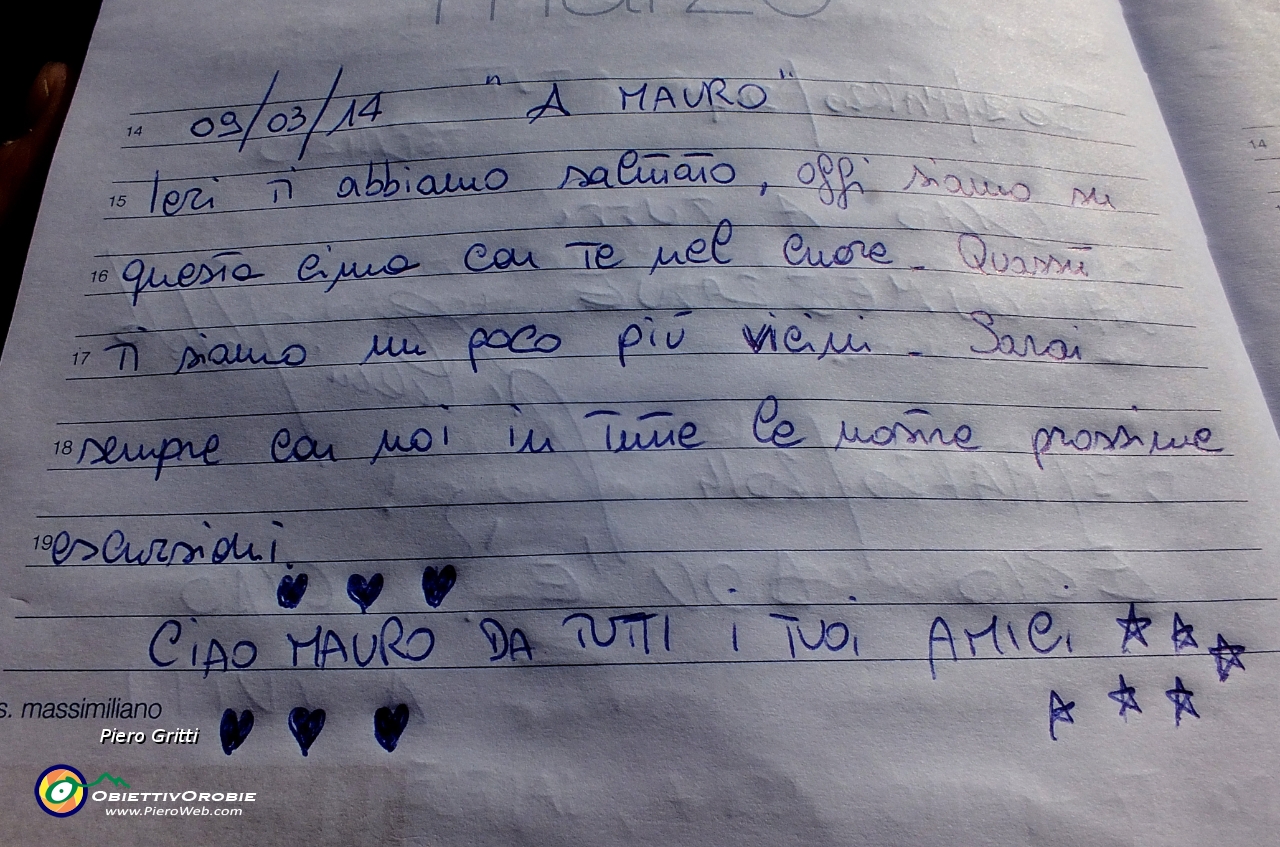 marzo
14 09/03/14 "A MAURO"
15 Ieri ti abbiamo salutato, oggi siamo su
16 questa cima con te nel cuore. Quassù
17 Ti siamo un poco più vicini. Sarai
18 sempre con noi in tutte le nostre prossime
19 escursioni.
CIAO MAURO DA TUTTI I TUOI AMICI
s. massimiliano
Piero Gritti
OBIETTIVOROBIE
www.PieroWeb.com
14